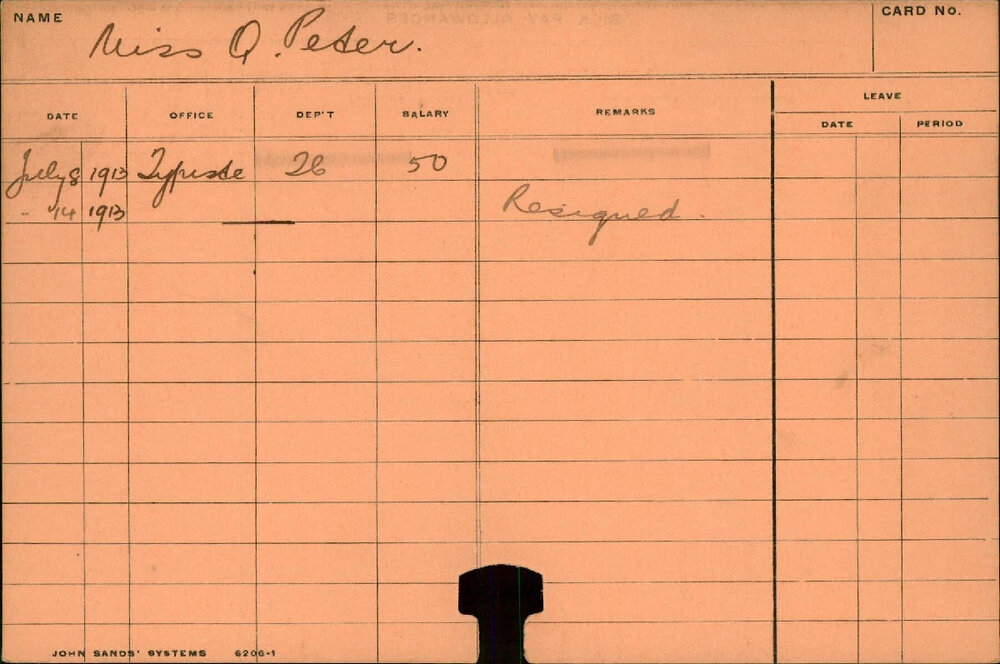 NAME Miss O. Peter. CARD No.
LEAVE
DATE OFFICE DEP'T SALARY REMARKS DATE PERIOD
July 8 1913 Typiste 26 50
" 14 1913 Resigned.
JOHN SANDS' SYSTEMS 6206-1